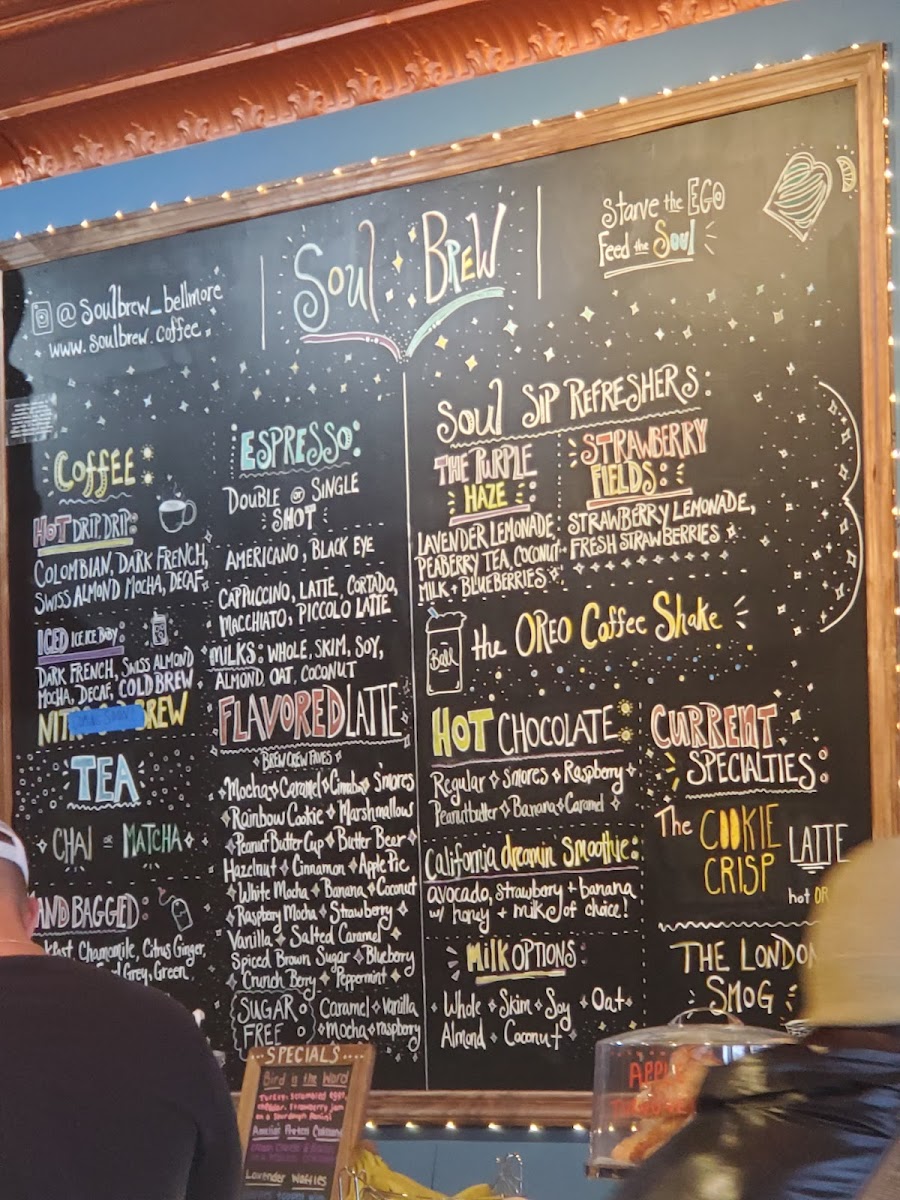 @soulbrew_bellmore
www.soulbrew.coffee
Soul BREW
Starve the EGO
Feed the Soul
Coffee
HOT DRIP, DRIP:
COLOMBIAN, DARK FRENCH,
SWISS ALMOND MOCHA, DECAF,
ICED ICE ICE BABY:
DARK FRENCH, SWISS ALMOND
MOCHA, DECAF, COLD BREW
BREW
TEA
CHAI OR MATCHA
AND BAGGED:
Chamomile, Citrus Ginger,
Grey, Green
ESPRESSO:
DOUBLE OR SINGLE
SHOT
AMERICANO, BLACK EYE
CAPPUCCINO, LATTE, CORTADO,
MACCHIATO, PICCOLO LATTE
MILKS: WHOLE, SKIM, SOY,
ALMOND, OAT, COCONUT
FLAVORED LATTE
BREW CREW FAVES
Mocha Caramel Cinnabun S'mores
Rainbow Cookie Marshmallow
Peanut Butter Cup Butter Bear
Hazelnut Cinnamon Apple Pie
White Mocha Banana Coconut
Raspberry Mocha Strawberry
Vanilla Salted Caramel
Spiced Brown Sugar Blueberry
Crunch Berry Peppermint
SUGAR FREE
Caramel Vanilla
Mocha raspberry
Soul SIP REFRESHERS:
THE PURPLE
HAZE:
LAVENDER LEMONADE,
PEABERRY TEA, COCONUT
MILK + BLUEBERRIES
STRAWBERRY
FIELDS:
STRAWBERRY LEMONADE,
FRESH STRAWBERRIES
Ball
the OREO Coffee Shake
HOT CHOCOLATE
Regular Smores Raspberry
Peanutbutter Banana Caramel
California dreamin Smoothie:
avocado, strawberry + banana
w/ honey + milk of choice!
Milk OPTIONS:
Whole Skim Soy Oat
Almond Coconut
CURRENT
SPECIALTIES:
The COOKIE
CRISP
LATTE
hot OR
THE LONDON
SMOG
SPECIALS
Bird is the Word
Turkey, Scrambled eggs,
cheddar, Strawberry jam
on a Sourdough Panini
Lavender Waffles